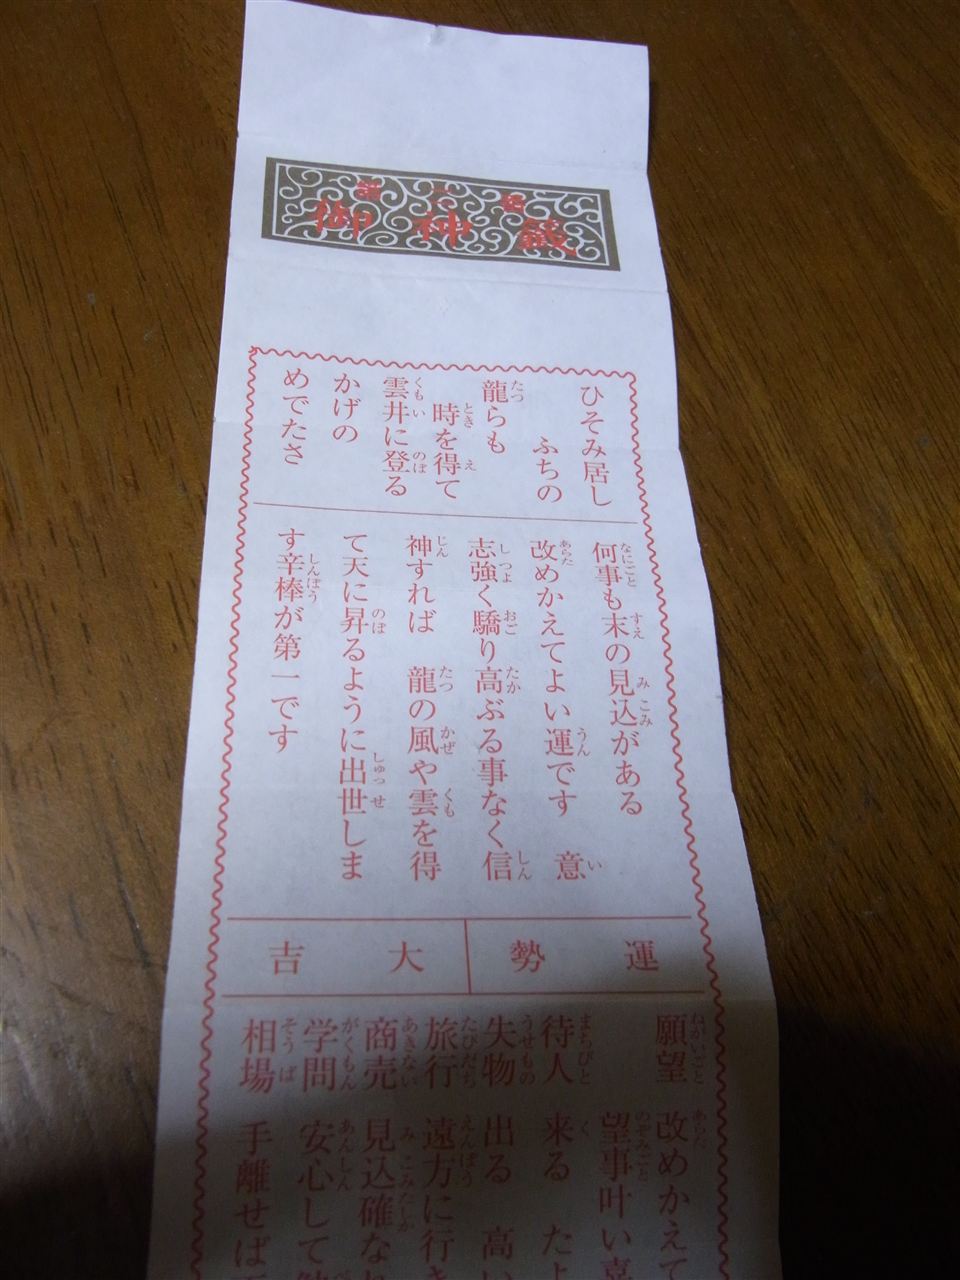 御神籤
ひそみ居し
ふちの
龍らも
時を得て
雲井に登る
かげの
めでたさ
何事も末の見込がある
改めかえてよい運です 意
志強く驕り高ぶる事なく信
神すれば 龍の風や雲を得
て天に昇るように出世しま
す辛棒が第一です
運勢 大吉
願望 改めかえて
望事叶い
待人 来る たよ
失物 出る 高い
旅行 遠方に行き
商売 見込確な
学問 安心して
相場 手離せば